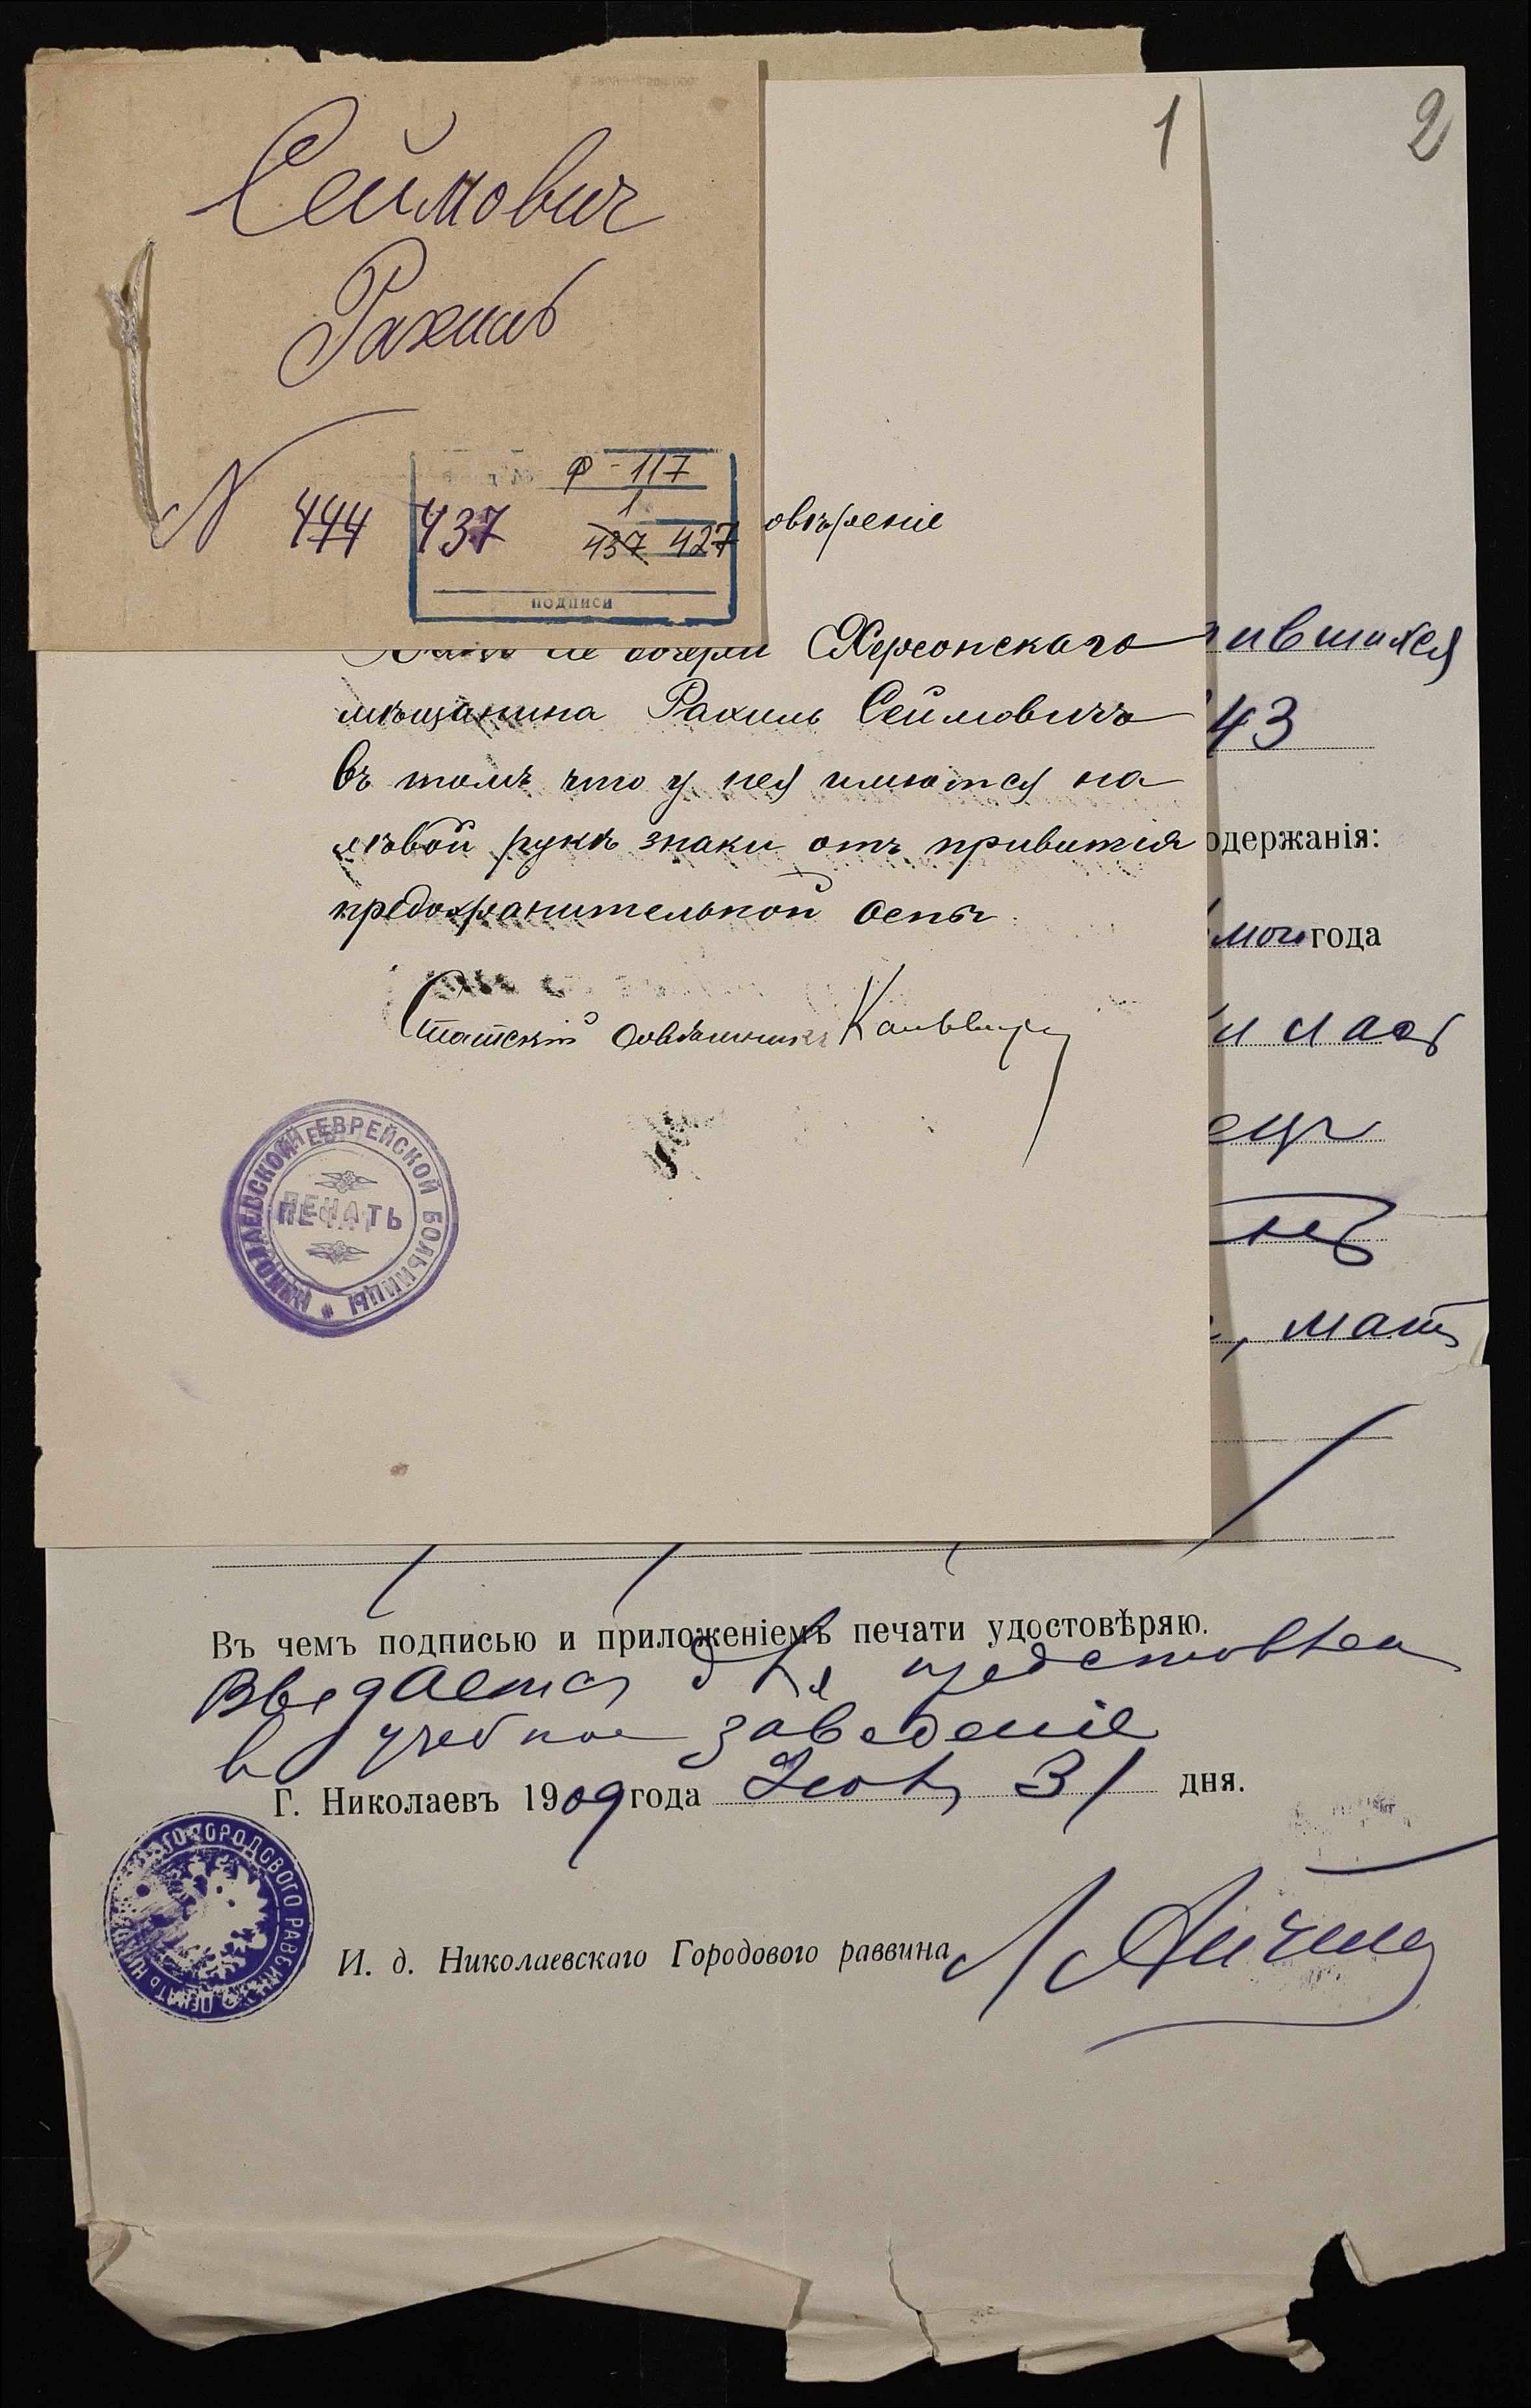 Сеймович
Рахиль
N 444 437
Ф-117
1
437 427
подписи
1
2
овѣреніе
дочери Херсонскаго
мѣщанина Рахиль Сеймовичъ
въ томъ что у нея имѣются на
лѣвой рукѣ знаки отъ привитія
предохранительной оспы.
Статскій Совѣтникъ
НИКОЛАЕВСКОЙ ЕВРЕЙСКОЙ БОЛЬНИЦЫ
ПЕЧАТЬ
ившихся
43
одержанія:
года
, мать
Въ чемъ подписью и приложеніемъ печати удостовѣряю.
Выдается для
в учебное заведеніе
Г. Николаевъ 1909 года 31 дня.
ГОРОДОВОГО РАВВИНА
ПЕЧАТЬ
И. д. Николаевскаго Городового раввина